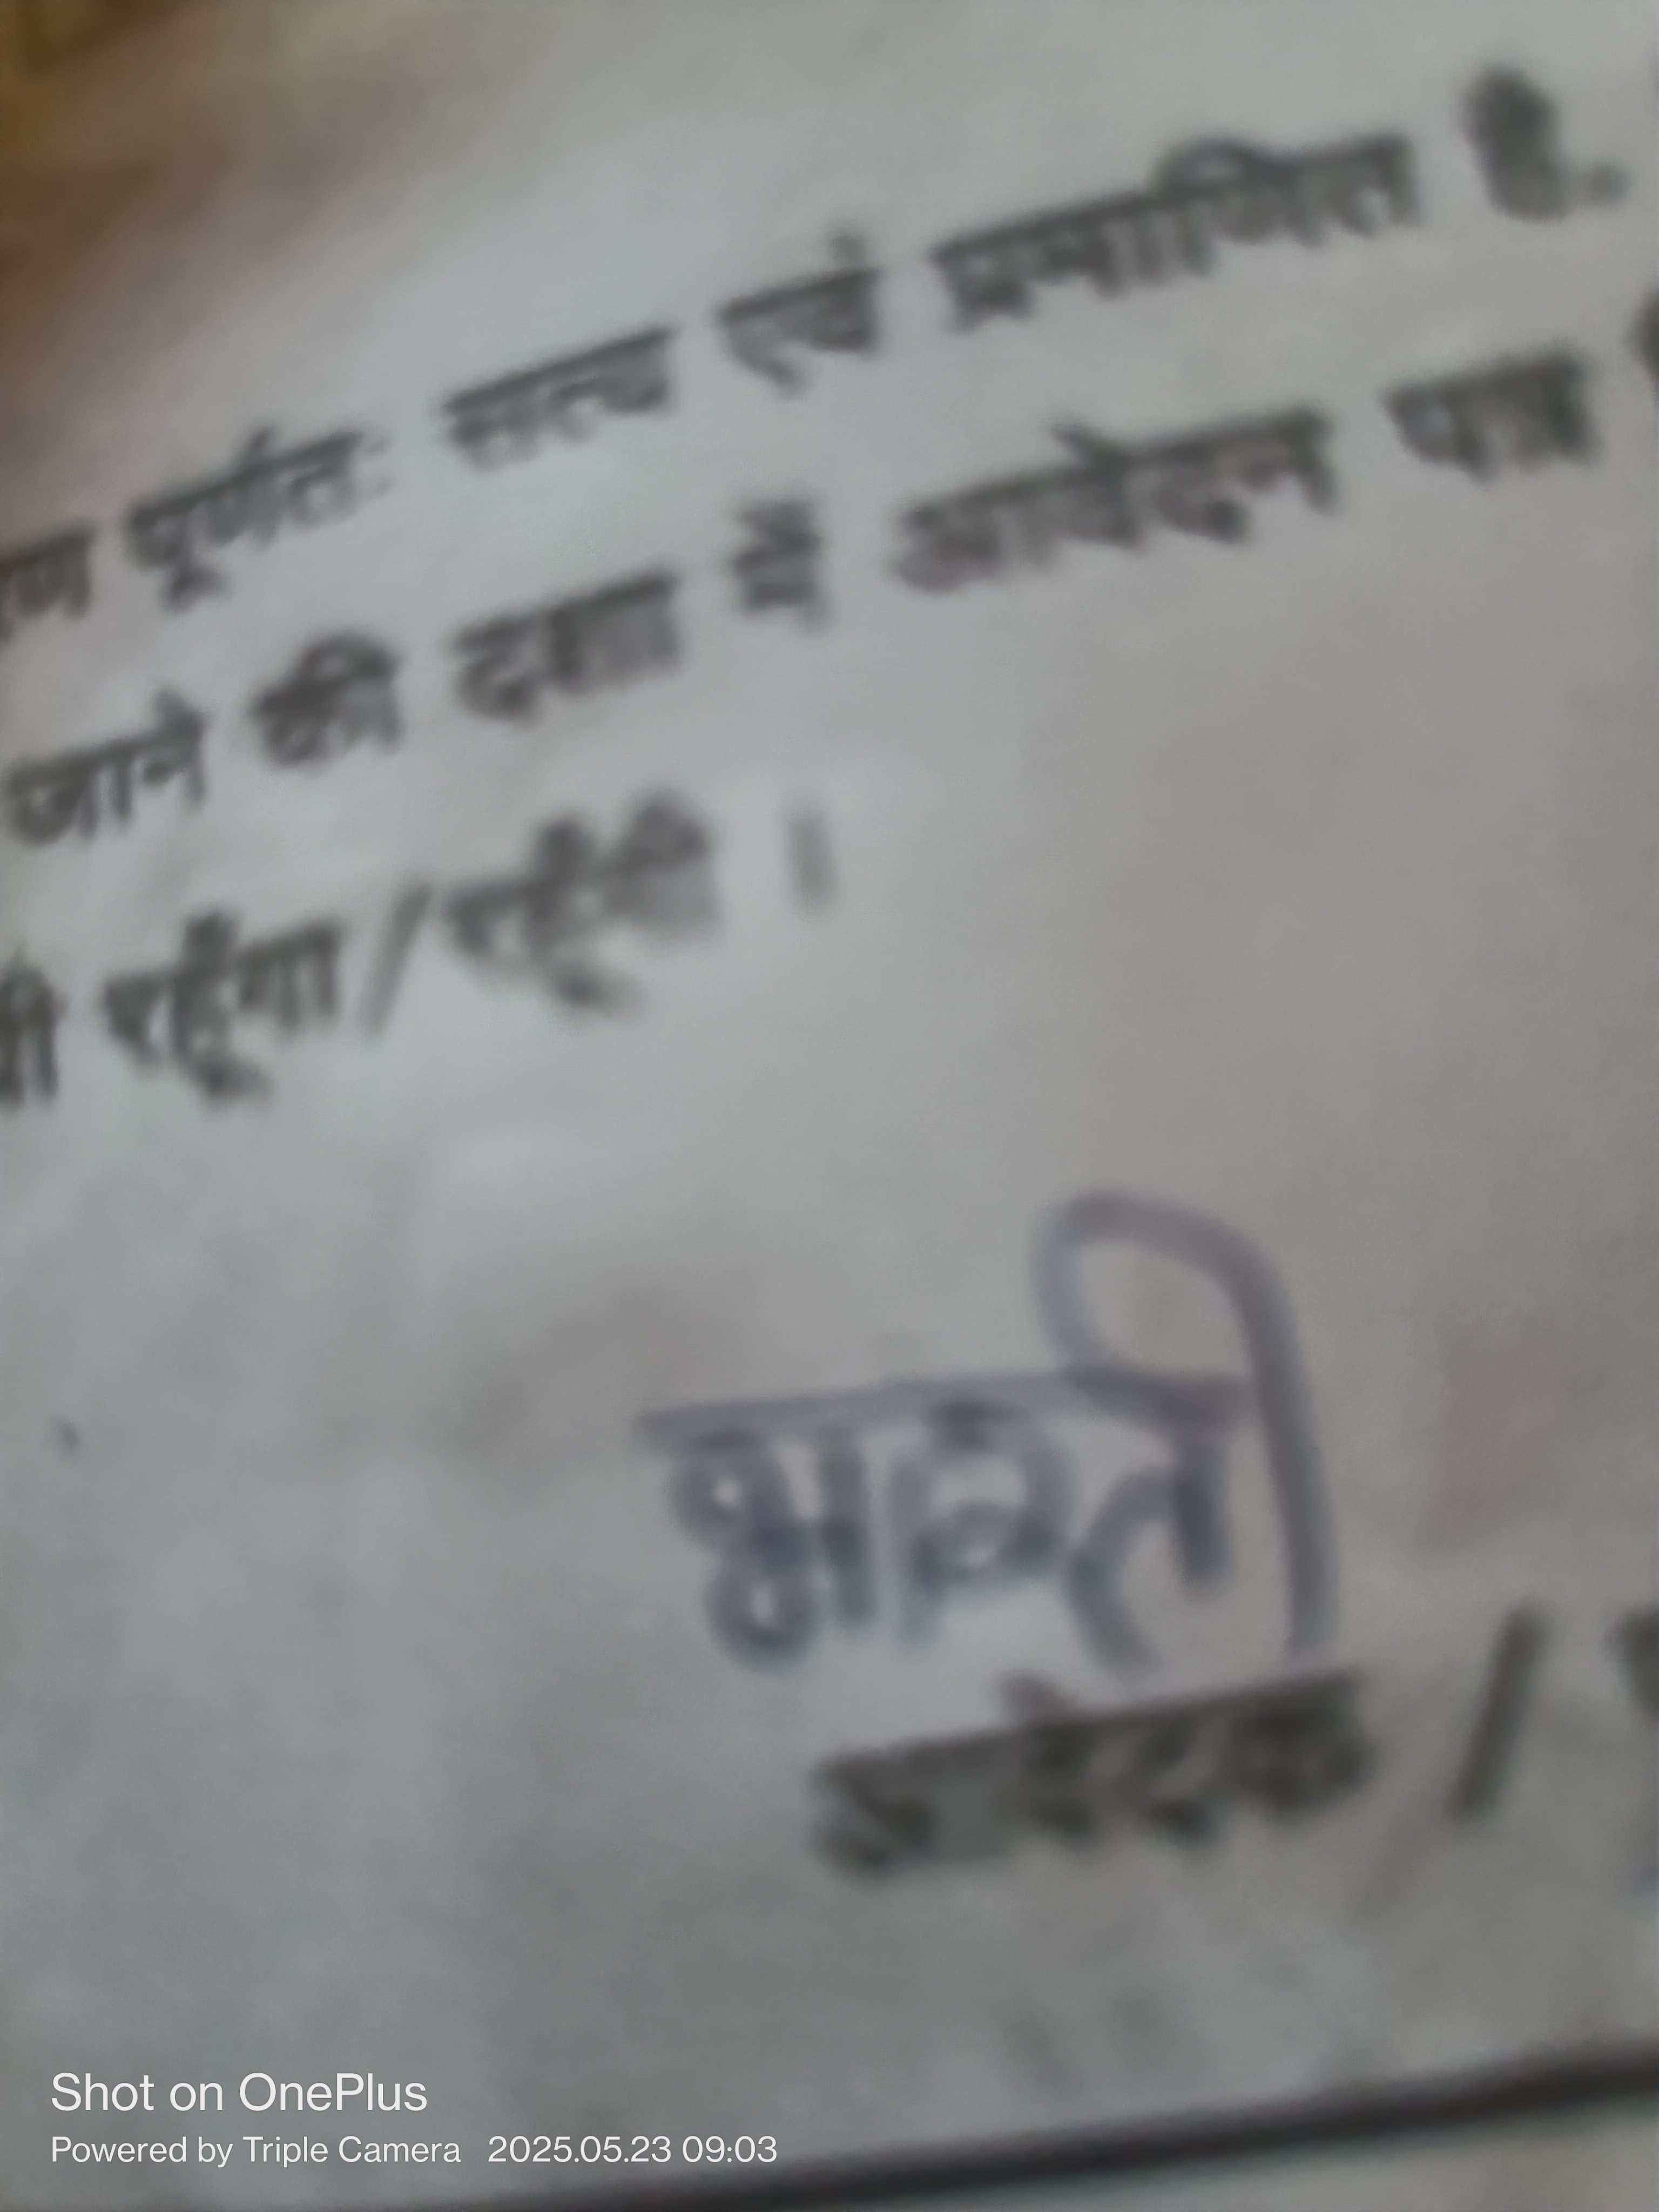 पूर्णतः सत्य एवं प्रमाणित है.
जाने की दशा में आवेदन पत्र
रहूँगा/रहूँगी ।
आवेदक /
Shot on OnePlus
Powered by Triple Camera 2025.05.23 09:03